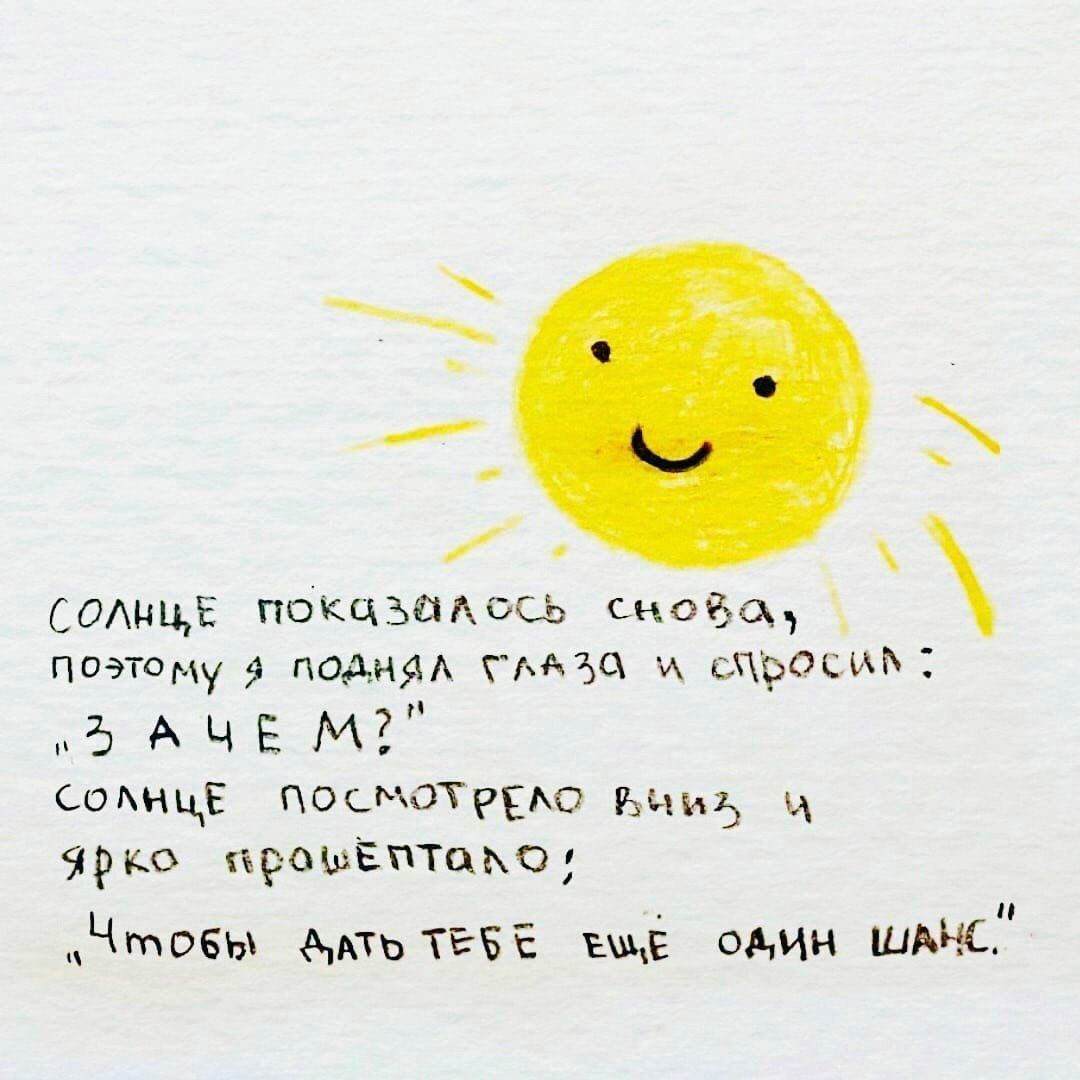 СОЛНЦЕ ПОКАЗАЛОСЬ СНОВА,
ПОЭТОМУ Я ПОДНЯЛ ГЛАЗА И СПРОСИЛ:
„З А Ч Е М?"
СОЛНЦЕ ПОСМОТРЕЛО ВНИЗ И
ЯРКО ПРОШЕПТАЛО;
„Чтобы ДАТЬ ТЕБЕ ЕЩЕ ОДИН ШАНС."